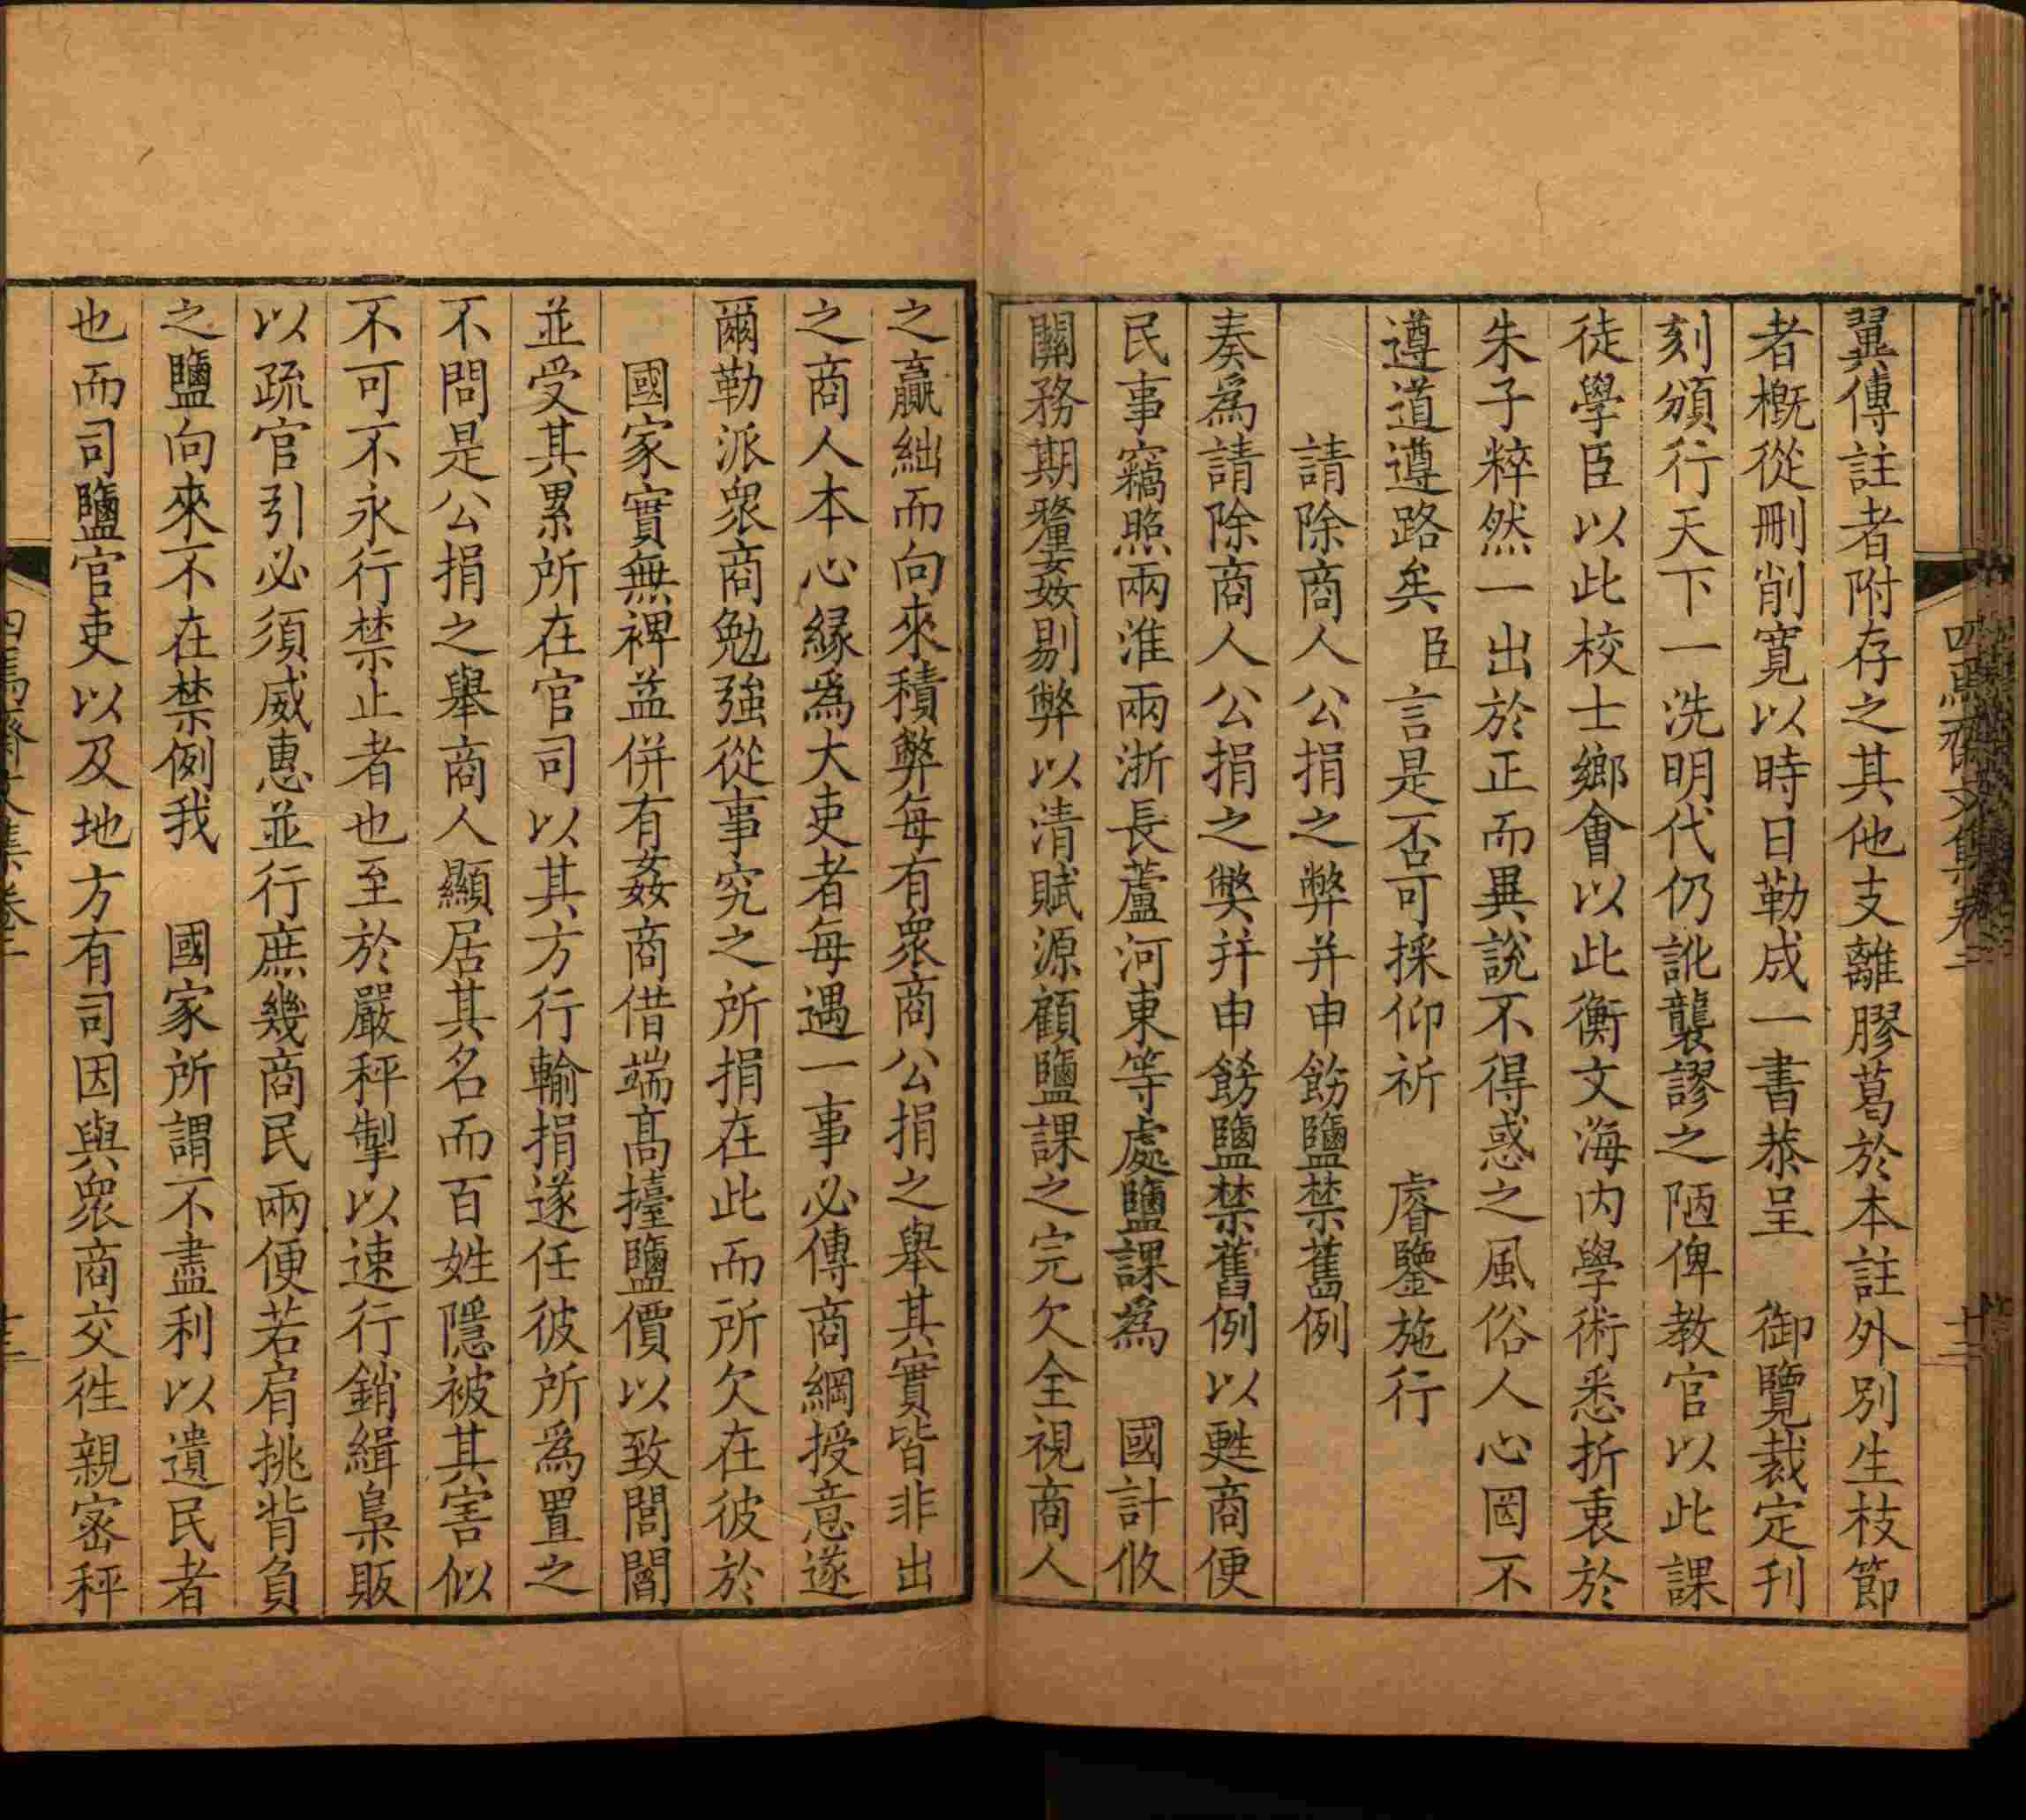 翼傳註者附存之其他支離膠葛於本註外別生枝節
者概從刪削寬以時日勒成一書恭呈　御覽裁定刋
刻頒行天下一洗明代仍訛襲謬之陋俾教官以此課
徒學臣以此校士鄉會以此衡文海内學術悉折衷於
朱子粹然一出於正而異說不得惑之風俗人心罔不
遵道遵路矣臣言是否可採仰祈　睿鑒施行
請除商人公捐之弊并申飭鹽禁舊例
奏爲請除商人公捐之獘并申飭鹽禁舊例以甦商便
民事竊照兩淮兩浙長蘆河東等處鹽課爲　國計攸
關務期釐姦剔弊以清賦源顧鹽課之完欠全視商人
之贏絀而向來積弊每有衆商公捐之舉其實皆非出
之商人本心緣爲大吏者每遇一事必傳商綱授意遂
爾勒派衆商勉強從事究之所捐在此而所欠在彼於
國家實無裨益併有姦商借端高擡鹽價以致閭閻
並受其累所在官司以其方行輸捐遂任彼所爲置之
不問是公捐之舉商人顯居其名而百姓隱被其害似
不可不永行禁止者也至於嚴秤掣以速行銷緝梟販
以疏官引必須威惠並行庶幾商民兩便若肩挑背負
之鹽向來不在禁例我　國家所謂不盡利以遺民者
也而司鹽官吏以及地方有司因與衆商交徃親密秤
四焉齋文集卷二